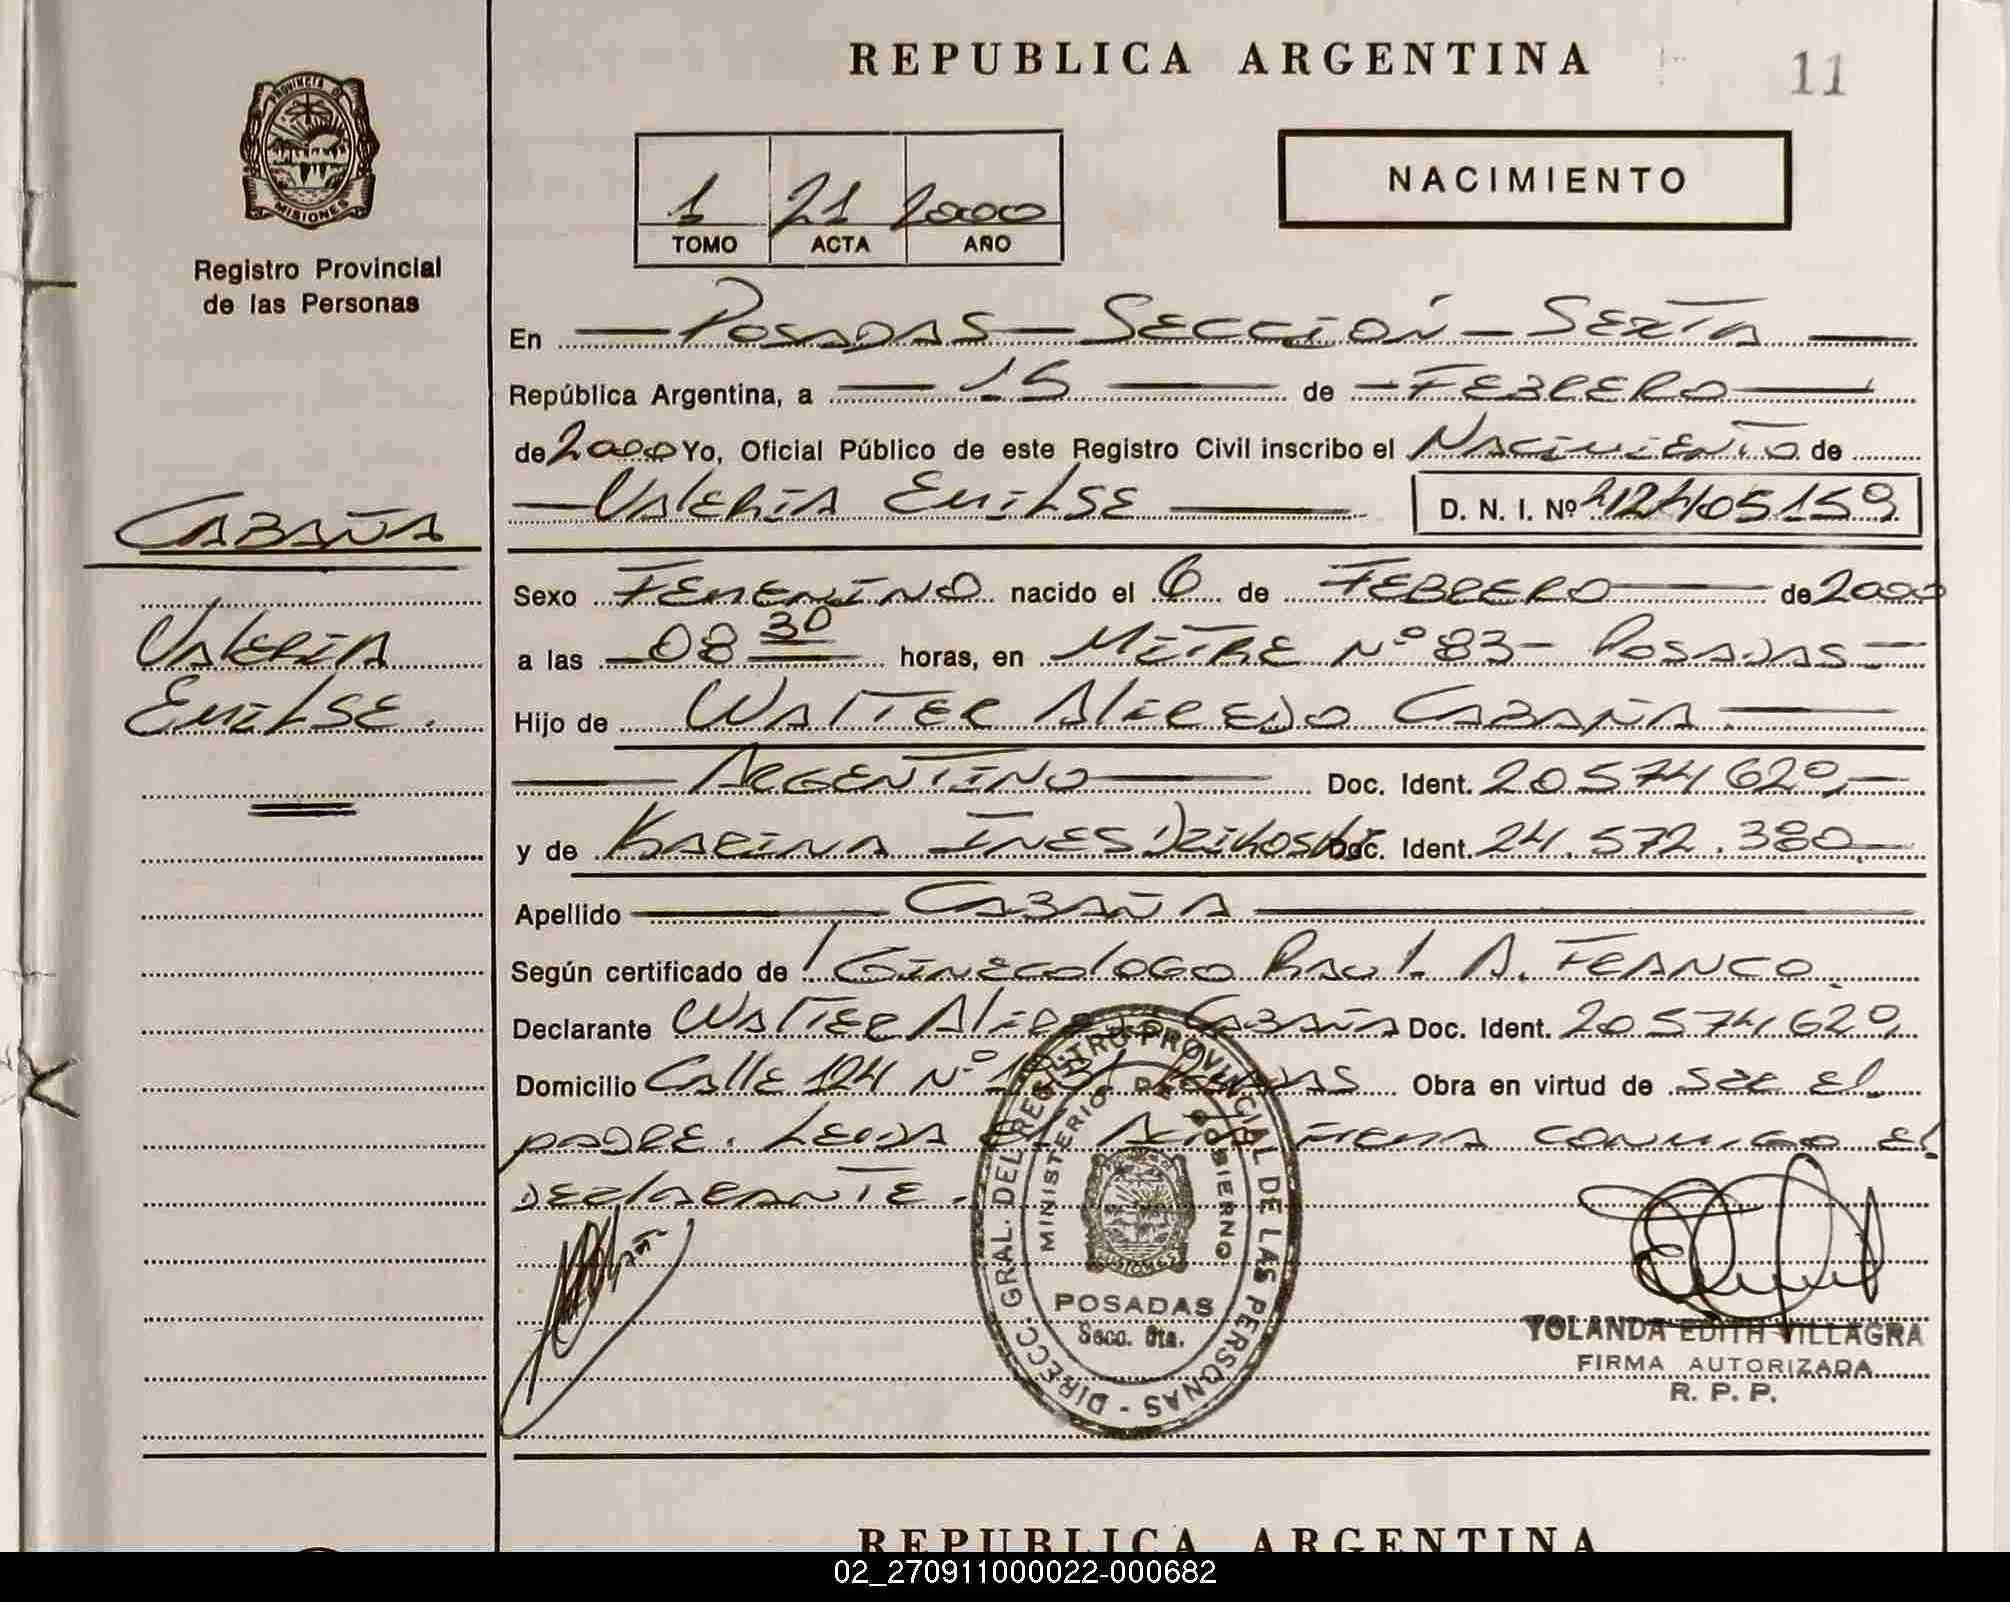 REPUBLICA ARGENTINA
11
PROVINCIA DE
MISIONES
Registro Provincial
de las Personas
1 21 2000
TOMO ACTA AÑO
NACIMIENTO
En Posadas - Sección - Sexta
República Argentina, a 15 de Febrero
de 2000 Yo, Oficial Público de este Registro Civil inscribo el Nacimiento de
Valeria Emilse D. N. I. Nº
CABAÑA
Valeria
Emilse.
Sexo Femenino nacido el 6 de Febrero de 2000
a las 08 30 horas, en Mitre Nº 83 - Posadas -
Hijo de Walter Alfredo Cabaña
Argentino Doc. Ident. 20.574.629,
y de Karina Ines Doc. Ident. 24.572.380
Apellido Cabaña
Según certificado de Ginecologo Raul A. Franco
Declarante Walter Alfredo Cabaña Doc. Ident. 20.574.629,
Domicilio Calle 124 Nº Posadas Obra en virtud de ser el
padre. Leida el Acta firma conmigo el
declarante.
DIRECC. GRAL. DEL REGISTRO PROVINCIAL DE LAS PERSONAS -
MINISTERIO DE GOBIERNO
MISIONES
POSADAS
Secc. 6ta.
YOLANDA EDITH VILLAGRA
FIRMA AUTORIZADA
R. P. P.
REPUBLICA ARGENTINA
02_270911000022-000682